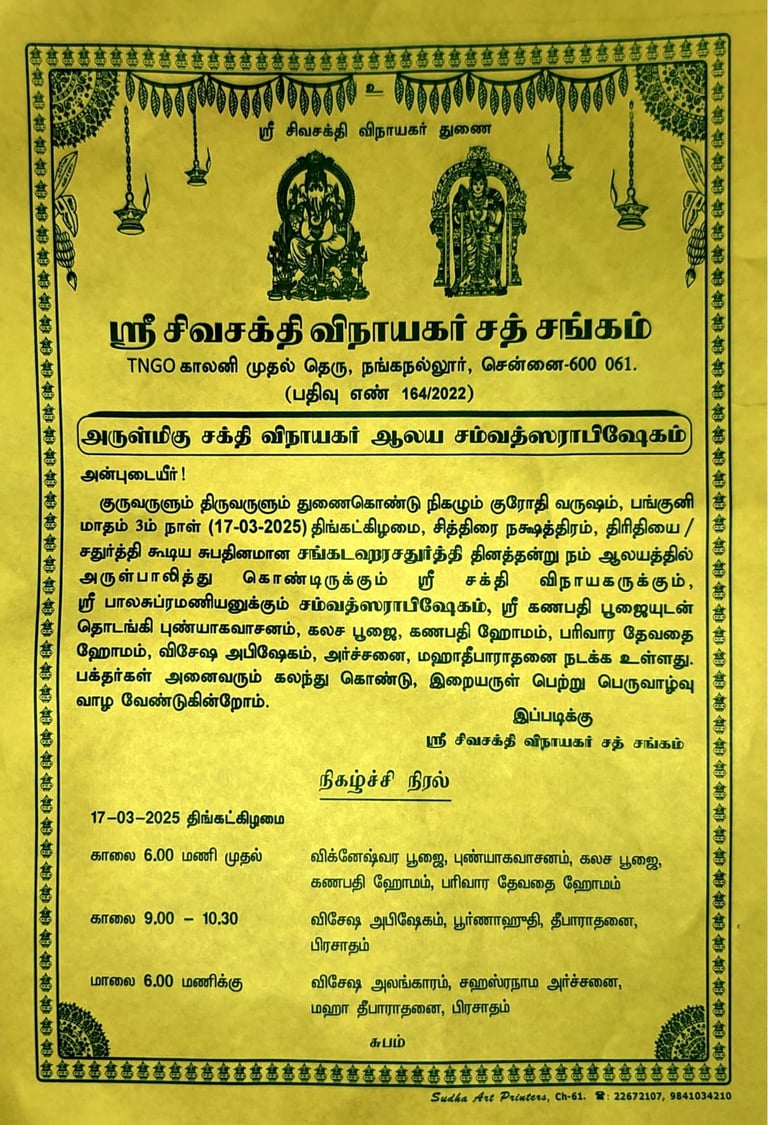 உ
ஸ்ரீ சிவசக்தி விநாயகர் துணை
ஸ்ரீ சிவசக்தி விநாயகர் சத் சங்கம்
TNGO காலனி முதல் தெரு, நங்கநல்லூர், சென்னை-600 061.
(பதிவு எண் 164/2022)
அருள்மிகு சக்தி விநாயகர் ஆலய சம்வத்ஸராபிஷேகம்
அன்புடையீர் !
குருவருளும் திருவருளும் துணைகொண்டு நிகழும் குரோதி வருஷம், பங்குனி
மாதம் 3ம் நாள் (17-03-2025) திங்கட்கிழமை, சித்திரை நக்ஷத்திரம், திரிதியை /
சதுர்த்தி கூடிய சுபதினமான சங்கடஹரசதுர்த்தி தினத்தன்று நம் ஆலயத்தில்
அருள்பாலித்து கொண்டிருக்கும் ஸ்ரீ சக்தி விநாயகருக்கும்,
ஸ்ரீ பாலசுப்ரமணியனுக்கும் சம்வத்ஸராபிஷேகம், ஸ்ரீ கணபதி பூஜையுடன்
தொடங்கி புண்யாகவாசனம், கலச பூஜை, கணபதி ஹோமம், பரிவார தேவதை
ஹோமம், விசேஷ அபிஷேகம், அர்ச்சனை, மஹாதீபாராதனை நடக்க உள்ளது.
பக்தர்கள் அனைவரும் கலந்து கொண்டு, இறையருள் பெற்று பெருவாழ்வு
வாழ வேண்டுகின்றோம்.
இப்படிக்கு
ஸ்ரீ சிவசக்தி விநாயகர் சத் சங்கம்
நிகழ்ச்சி நிரல்
17-03-2025 திங்கட்கிழமை
காலை 6.00 மணி முதல் விக்னேஷ்வர பூஜை, புண்யாகவாசனம், கலச பூஜை,
கணபதி ஹோமம், பரிவார தேவதை ஹோமம்
காலை 9.00 – 10.30 விசேஷ அபிஷேகம், பூர்ணாஹுதி, தீபாராதனை,
பிரசாதம்
மாலை 6.00 மணிக்கு விசேஷ அலங்காரம், சஹஸ்ரநாம அர்ச்சனை,
மஹா தீபாராதனை, பிரசாதம்
சுபம்
Sudha Art Printers, Ch-61. ☎: 22672107, 9841034210